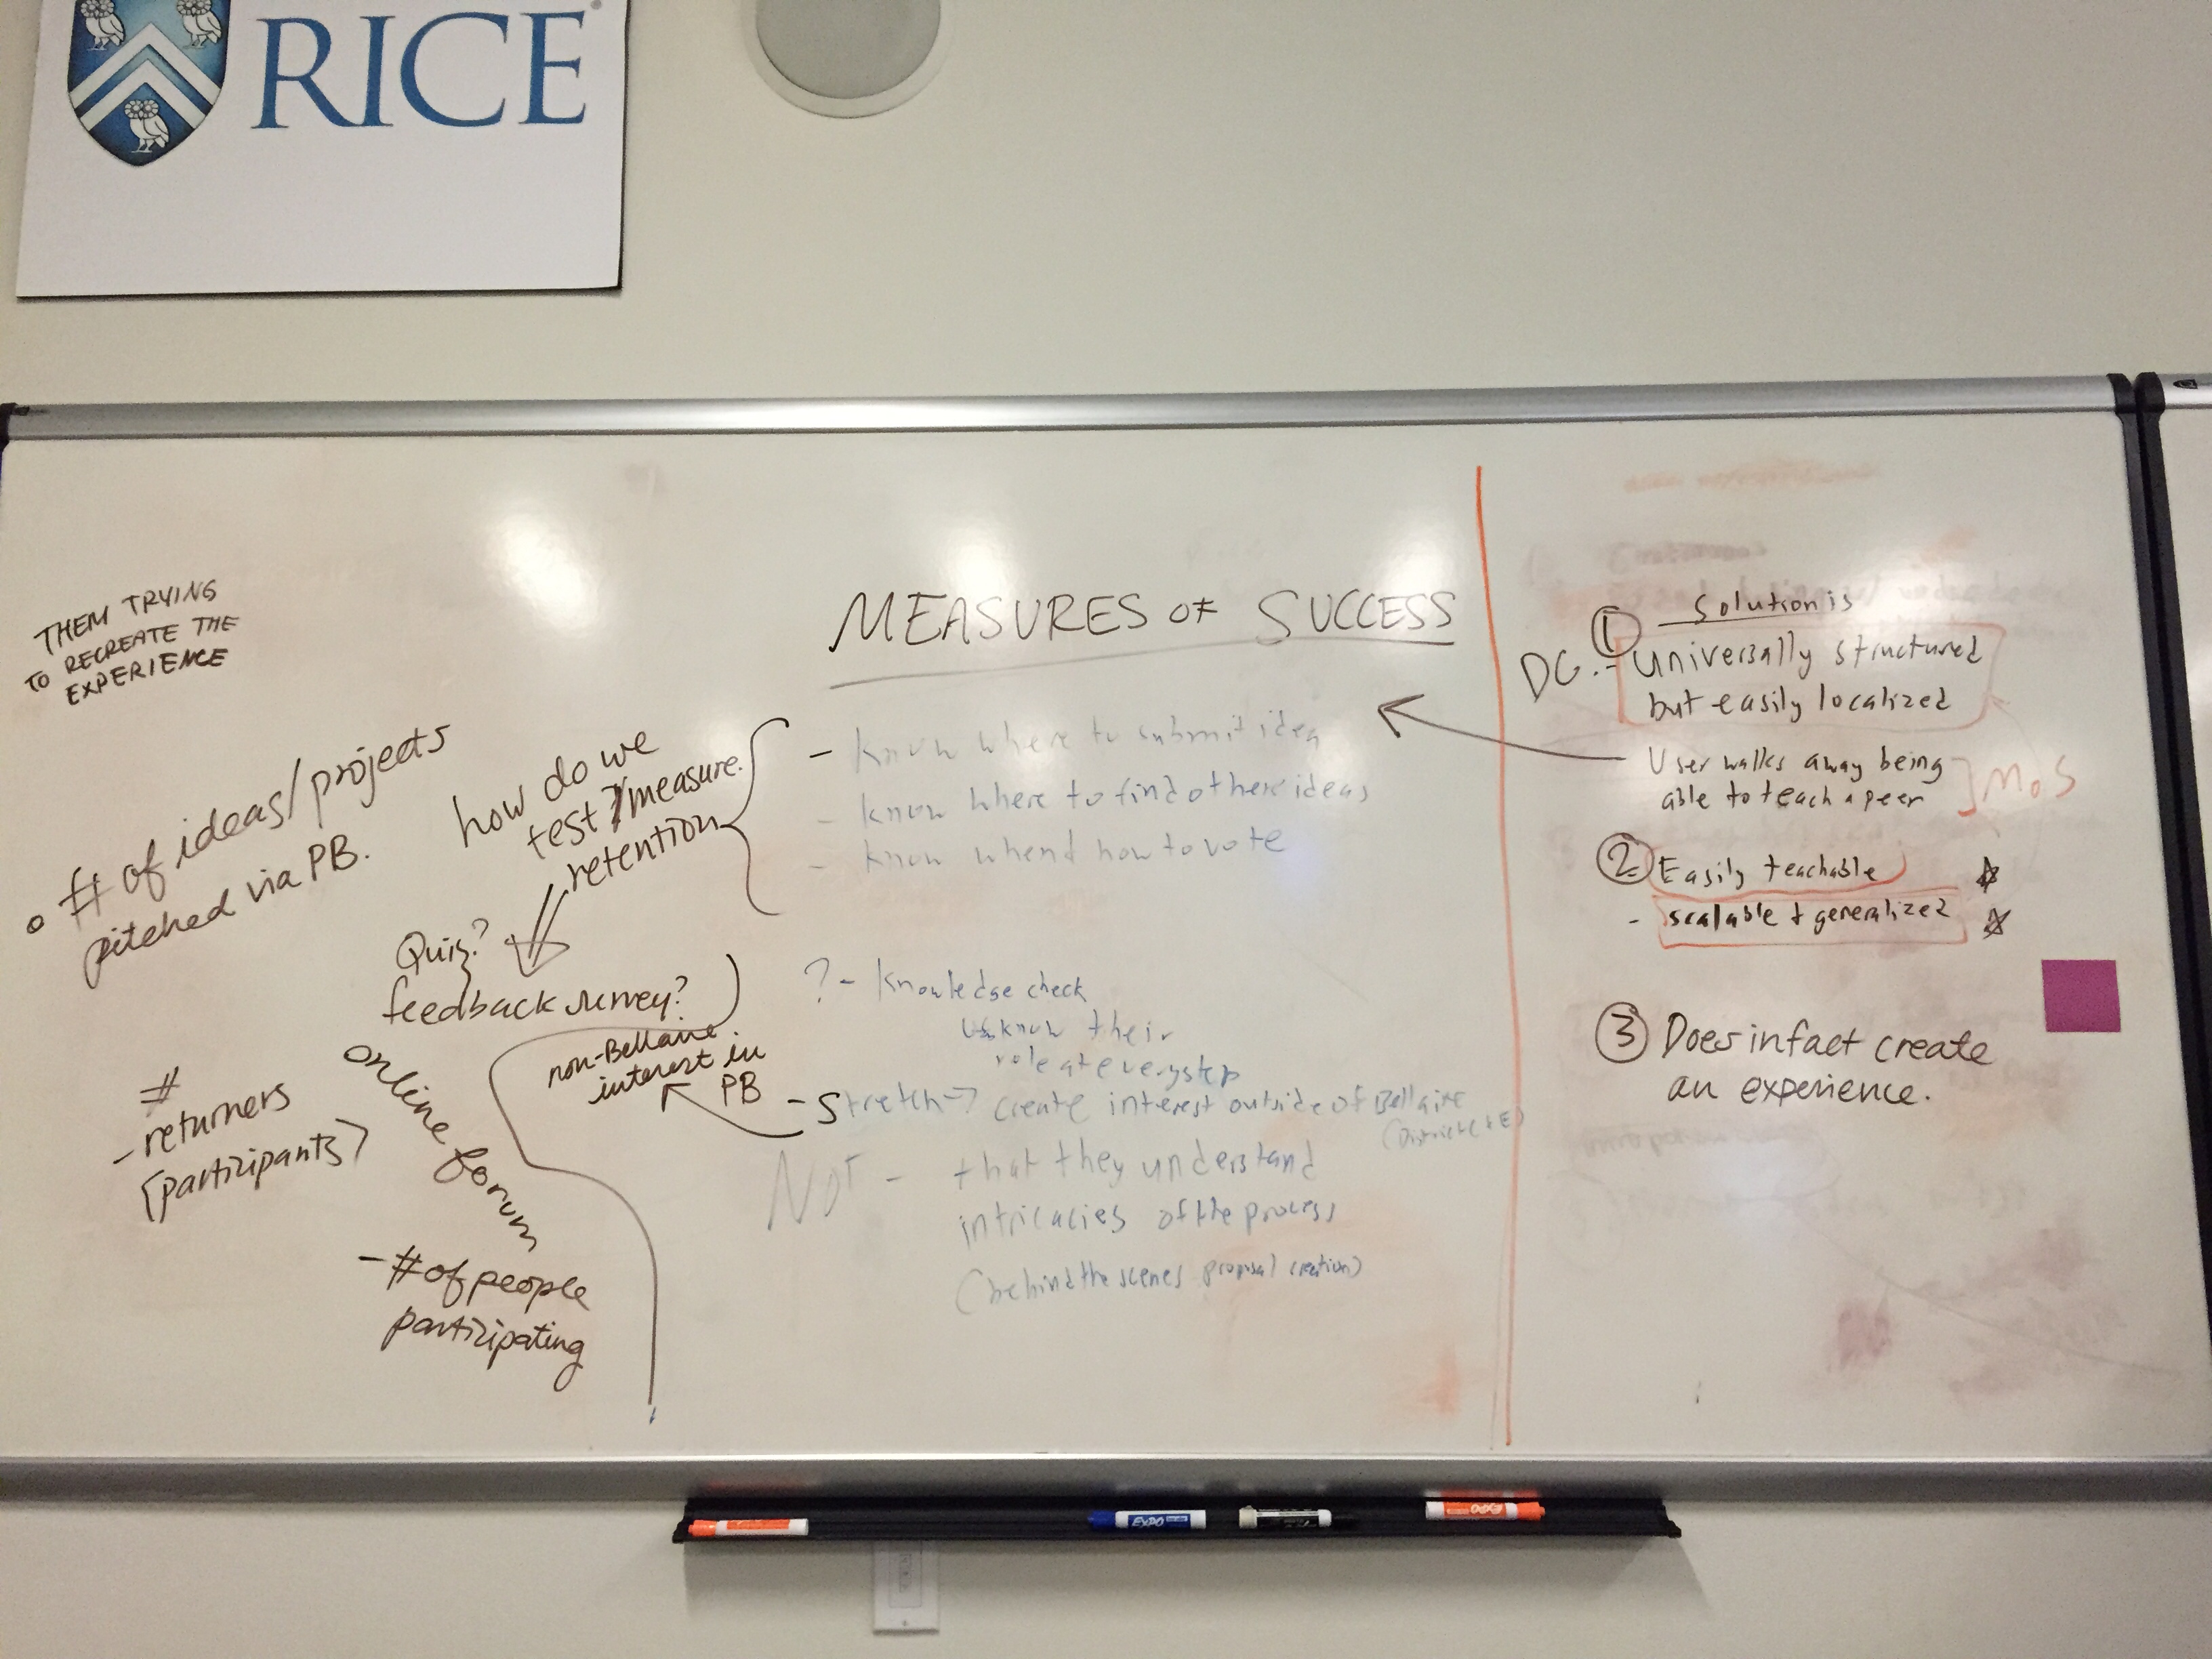 RICE
THEM TRYING
TO RECREATE THE
EXPERIENCE
# of ideas/projects
pitched via PB.
how do we
test?/measure.
retention
Quiz?
feedback survey?
non-Bellaire
interest in
PB
online forum
- # of people
participating
#
- returners
[participants]
MEASURES OF SUCCESS
- know where to submit idea
- know where to find other ideas
- know when & how to vote
? - Knowledge check
know their
role at every step
- Stretch → create interest outside of Bellaire
(District
NOT - that they understand
intricacies of the process
(behind the scenes proposal creation)
① Solution is
DG. - universally structured
but easily localized
User walks away being
able to teach a peer
] MoS
② Easily teachable ☆
- scalable + generalized ☆
③ Does infact create
an experience.
EXPO
EXPO